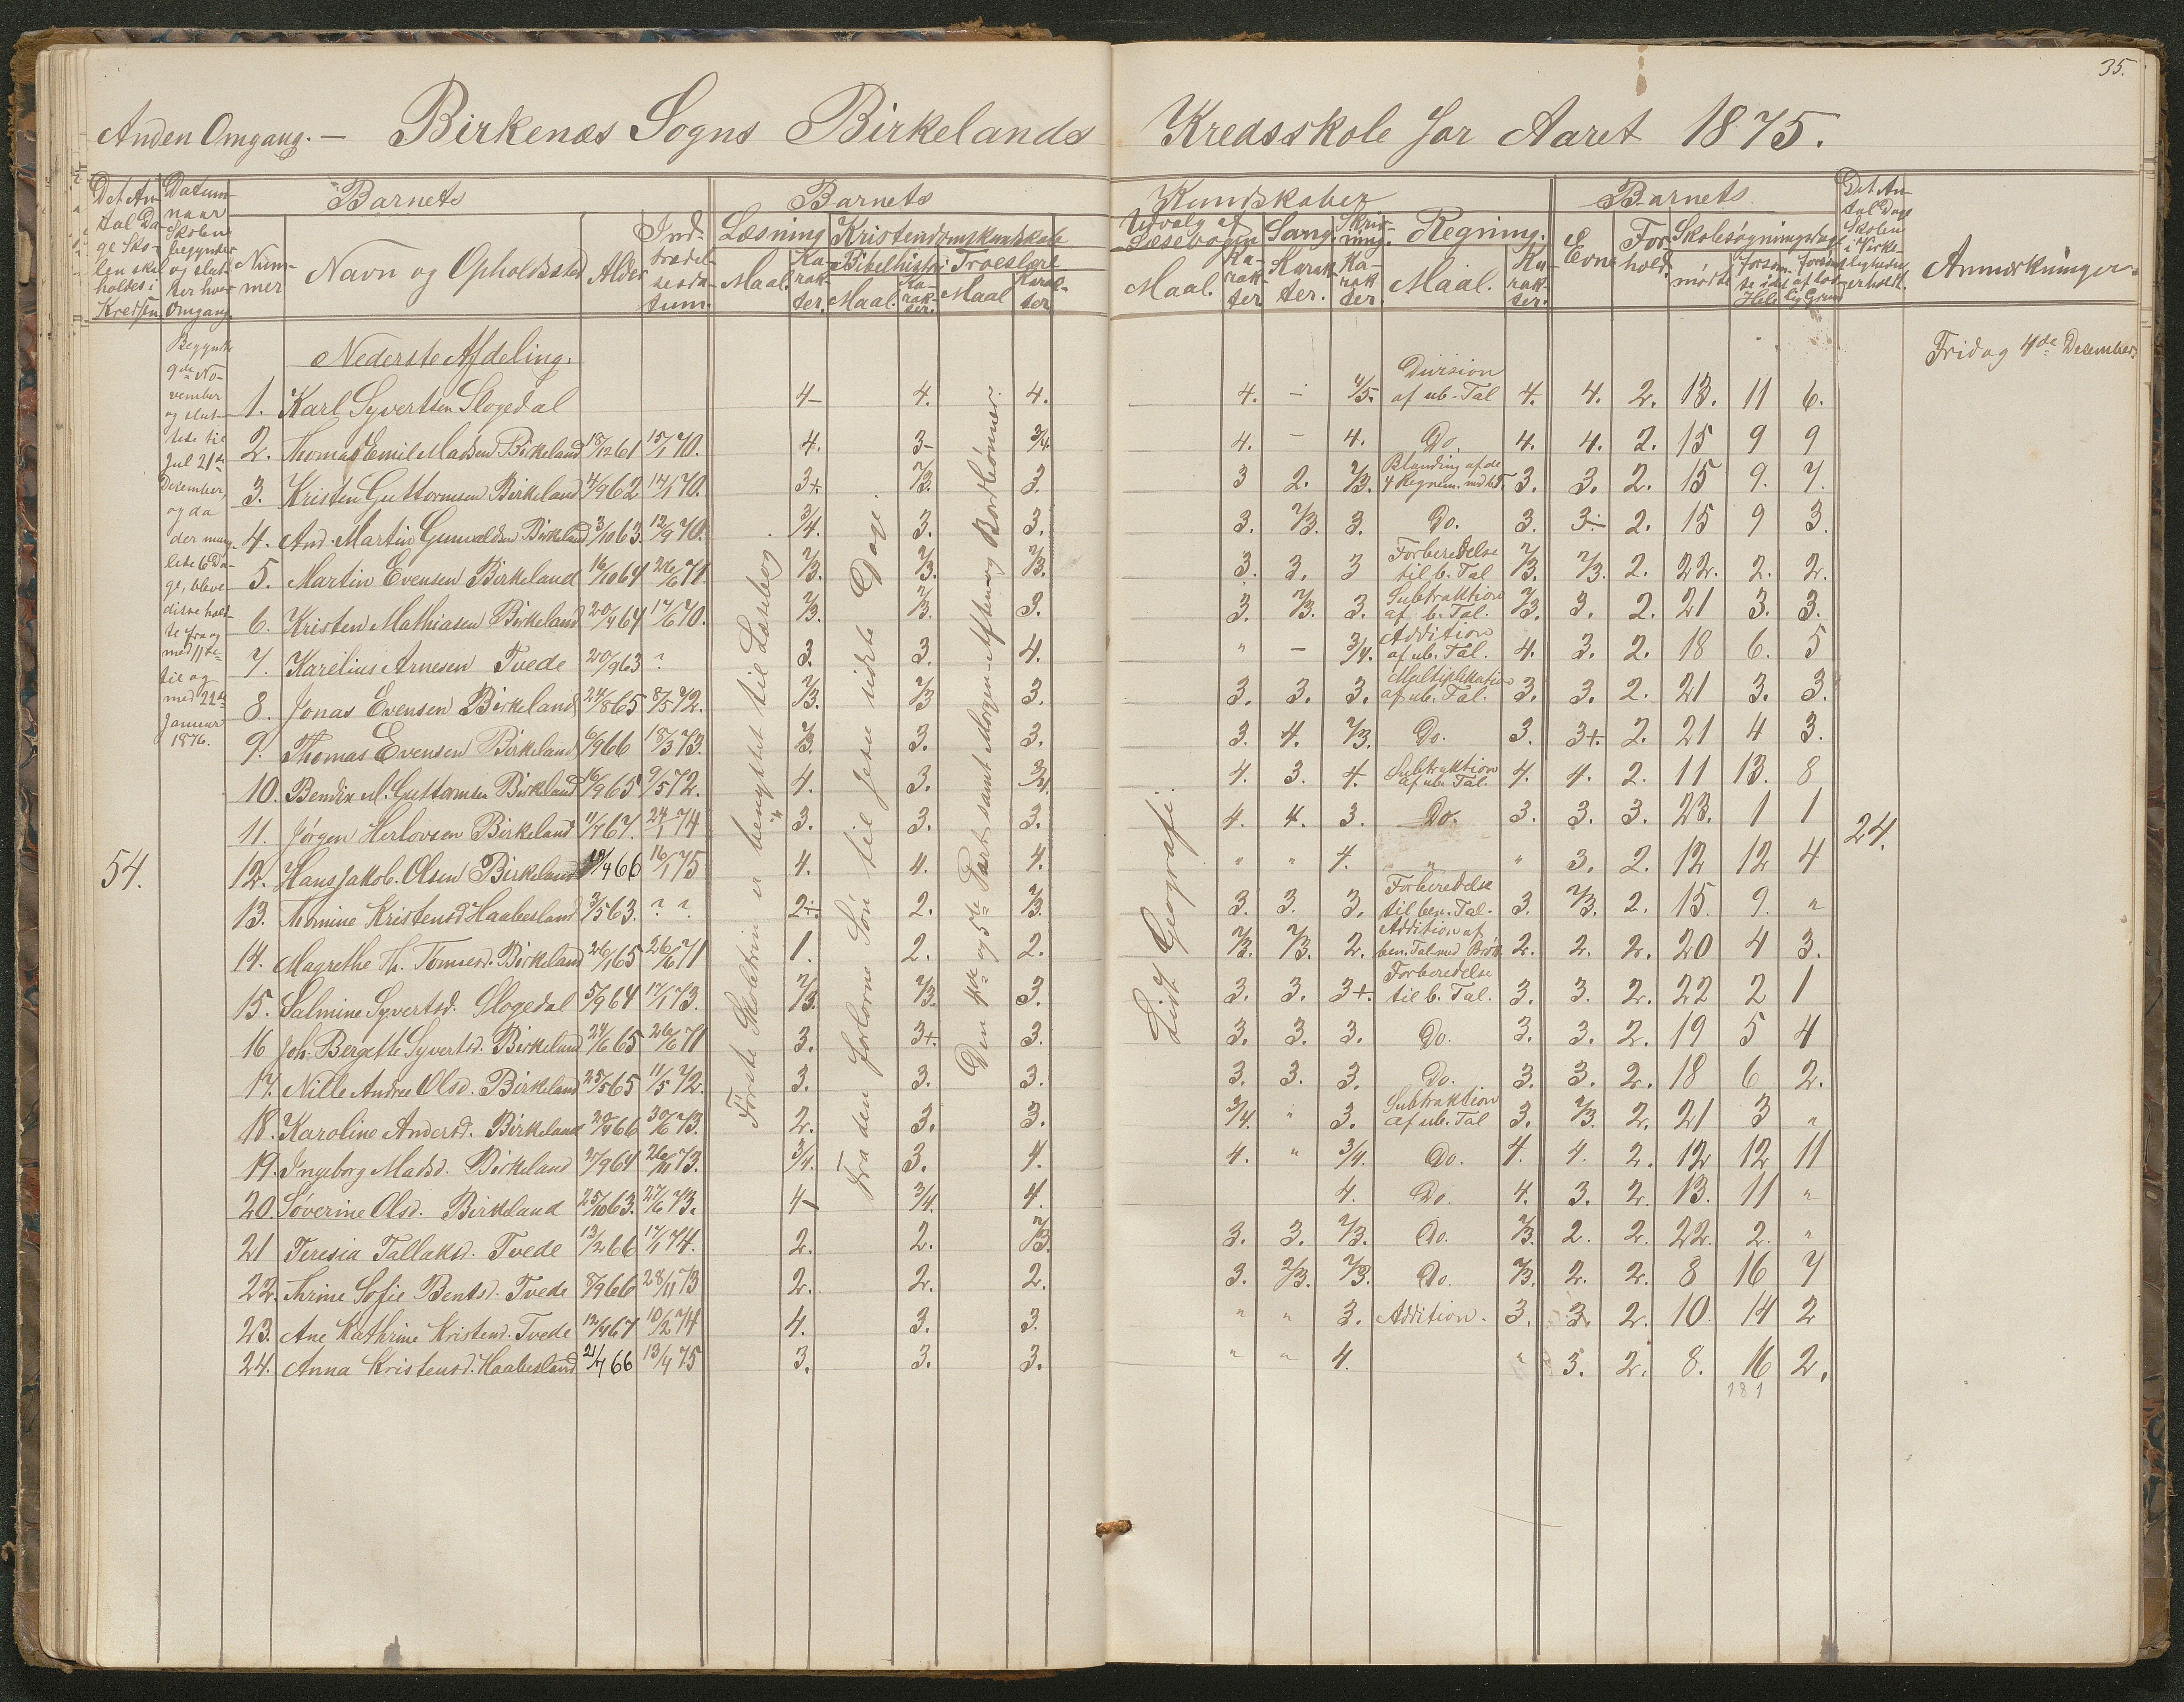 35.
Anden Omgang. — Birkenæs Sogns Birkelands Kredsskole for Aaret 1875.
Det An-
tal Da-
ge Sko-
len skal
holdes i
Kredsen.
Datum
naar
Skolen
begynder
og slut-
ter hver
Omgang.
Barnets
Num-
mer
Navn og Opholdssted.
Alder
Ind-
trædel-
sesda-
tum.
Barnets
Læsning
Maal.
Ka-
rak-
ter.
Kristendomskundskab
Bibelhistori
Maal.
Ka-
rak-
ter.
Troeslære
Maal
Karak-
ter
Kundskaber
Udvalg af
Læsebogen
Maal.
Ka-
rak-
ter
Sang.
Karak-
ter.
Skriv-
ning.
Ka-
rak-
ter.
Regning.
Maal.
Ka-
rak-
ter.
Barnets
Evne
For-
hold.
Skolesøgningsdage
mødte
forsøm-
te i det
Hele
forsømt
af lov-
lig Grund
Det An-
tal Dage
Skolen
i Virke-
ligheden
erholdt.
Anmærkninger.
Fridag 4de December.
Begyndte
9de No-
vember
og slut-
tede til
Jul 21de
December,
og da
der mang-
lede 6 Da-
ge, bleve
disse hold-
te fra og
med 11te
til og
med 22de
Januar
1876.
54.
24.
Første Skoletrin er benyttet til Læsebog
Fra den forlorne Søn til Jesu sidste Dage.
Den 4de og 5te Part samt Morgen- Aften- og Bordbønner.
Lidt Geografi.
Nederste Afdeling.
1. Karl Syvertsen Slogedal 4- 4. 4. 4. - 4/5. Division af ub. Tal 4. 4. 2. 13. 11 6.
2. Thomas Emil Madsen Birkeland 18/12 61 15/1 70. 4. 3- 3/4. 4. - 4. Do. 4. 4. 2. 15 9 9
3. Kristen Guttormsen Birkeland 14/9 62 14/1 70. 3+. 2/3. 3. 3 2. 2/3. Blanding af de 4 Regnem. med b.T. 3. 3. 2. 15 9. 7.
4. And. Martin Gunvaldsen Birkeland 3/10 63. 12/9 70. 3/4. 3. 3. 3. 2/3. 3. Do. 3. 3- 2. 15 9 3.
5. Martin Evensen Birkeland 16/10 64 26/6 71. 2/3. 2/3. 2/3. 3. 3. 3 Forberedelse til b. Tal 2/3. 2/3. 2. 22. 2. 2.
6. Kristen Mathiasen Birkeland 20/4 64 17/6 70. 2/3. 2/3. 3. 3. 2/3. 3. Subtraktion af b. Tal. 2/3. 3. 2. 21 3. 3.
7. Karelius Arnesen Tvede 20/9 63 ? 3. 3. 4. " - 3/4. Addition af ub. Tal. 4. 3. 2. 18 6. 5
8. Jonas Evensen Birkeland 24/8 65 8/5 72. 2/3. 2/3 3. 3. 3. 3. Multiplikation af ub. Tal. 3. 3. 2. 21 3. 3.
9. Thomas Evensen Birkeland 6/9 66 18/3 73. 2/3. 3. 3. 3. 4. 2/3. Do. 3. 3+. 2. 21 4 3.
10. Bendix M. Guttormsen Birkeland 16/9 65 9/5 72. 4. 3. 3/4. 4. 3. 4. Subtraktion af ub. Tal. 4. 4. 2. 11 13. 8
11. Jørgen Herlovsen Birkeland 11/7 67. 24/1 74 3. 3. 3. 4. 4. 3. Do. 3. 3. 3. 23. 1 1
12. Hans Jakob. Olsen Birkeland 19/4 66 16/1 75 4. 4. 4. " " 4. " " 3. 2. 12 12 4
13. Thomine Kristensd. Haabesland 3/5 63. ? ? 2+. 2. 2/3. 3. 3. 3. Forberedelse til ben. Tal. 3. 2/3. 2. 15. 9. "
14. Magrethe Th. Tomesd. Birkeland 26/1 65 26/6 71 1. 2. 2. 2/3. 2/3. 2. Addition af ben. Tal med Brøk 2. 2. 2. 20 4 3.
15. Salmine Syvertsd. Slogedal 5/9 64 17/1 73. 2/3. 2/3. 3. 3. 3. 3+. Forberedelse til b. Tal. 3. 3. 2. 22 2 1
16 Joh. Bergette Syvertsd. Birkeland 24/6 65 26/6 71 3. 3+. 3. 3. 3. 3. Do. 3. 3. 2. 19 5 4
17. Nille Andrea Olsd. Birkeland 25/5 65 11/5 72. 3. 3. 3. 3. 3. 3. Do. 3. 3. 2. 18 6 2.
18. Karoline Andersd. Birkeland 20/4 66 30/6 73. 2. 3. 3. 3/4. " 3. Subtraktion af ub. Tal 3. 2/3. 2. 21 3 "
19. Ingeborg Madsd. Birkeland 27/9 64 26/11 73. 3/4. 3. 4. 4. " 3/4. Do. 4. 4. 2. 12 12 11
20. Søverine Olsd. Birkeland 25/10 63. 27/6 73. 4- 3/4. 4. 4. Do. 4. 3. 2. 13. 11 "
21 Teresia Tallaksd. Tvede 13/2 66 17/1 74. 2. 2. 2/3. 3. 3. 2/3. Do. 2/3. 2. 2. 22. 2. "
22. Thrine Sofie Bentsd. Tvede 8/9 66 28/11 73 2. 2. 2. 3. 2/3. 2/3. Do. 2/3. 2. 2. 8 16 7
23. Ane Kathrine Kristensd. Tvede 12/4 67 10/2 74 4. 3. 3. " " 3. Addition. 3. 3. 2. 10. 14 2
24. Anna Kristensd. Haabesland 21/7 66 13/4 75 3. 3. 3. " " 4. " 3. 2. 8. 16 2.
181